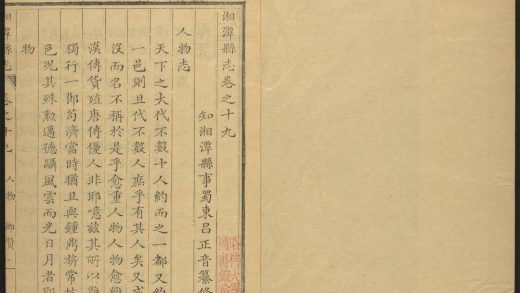 湘潭縣志卷之十九
知湘潭縣事蜀東呂正音纂修
人物志
天下之大代不數十人約而之一都又約
一邑則且代不數人庶乎有其人矣又或
沒而名不稱於是乎愈重人物人物愈難
漢傳貨殖唐傳優人非耶意茲其所以難
獨行一節苟濟當時猶且與鐘鼎旂常
色况其殊勲邁德躡風雲而光日月者
物
湘潭縣志
卷之十九
人物